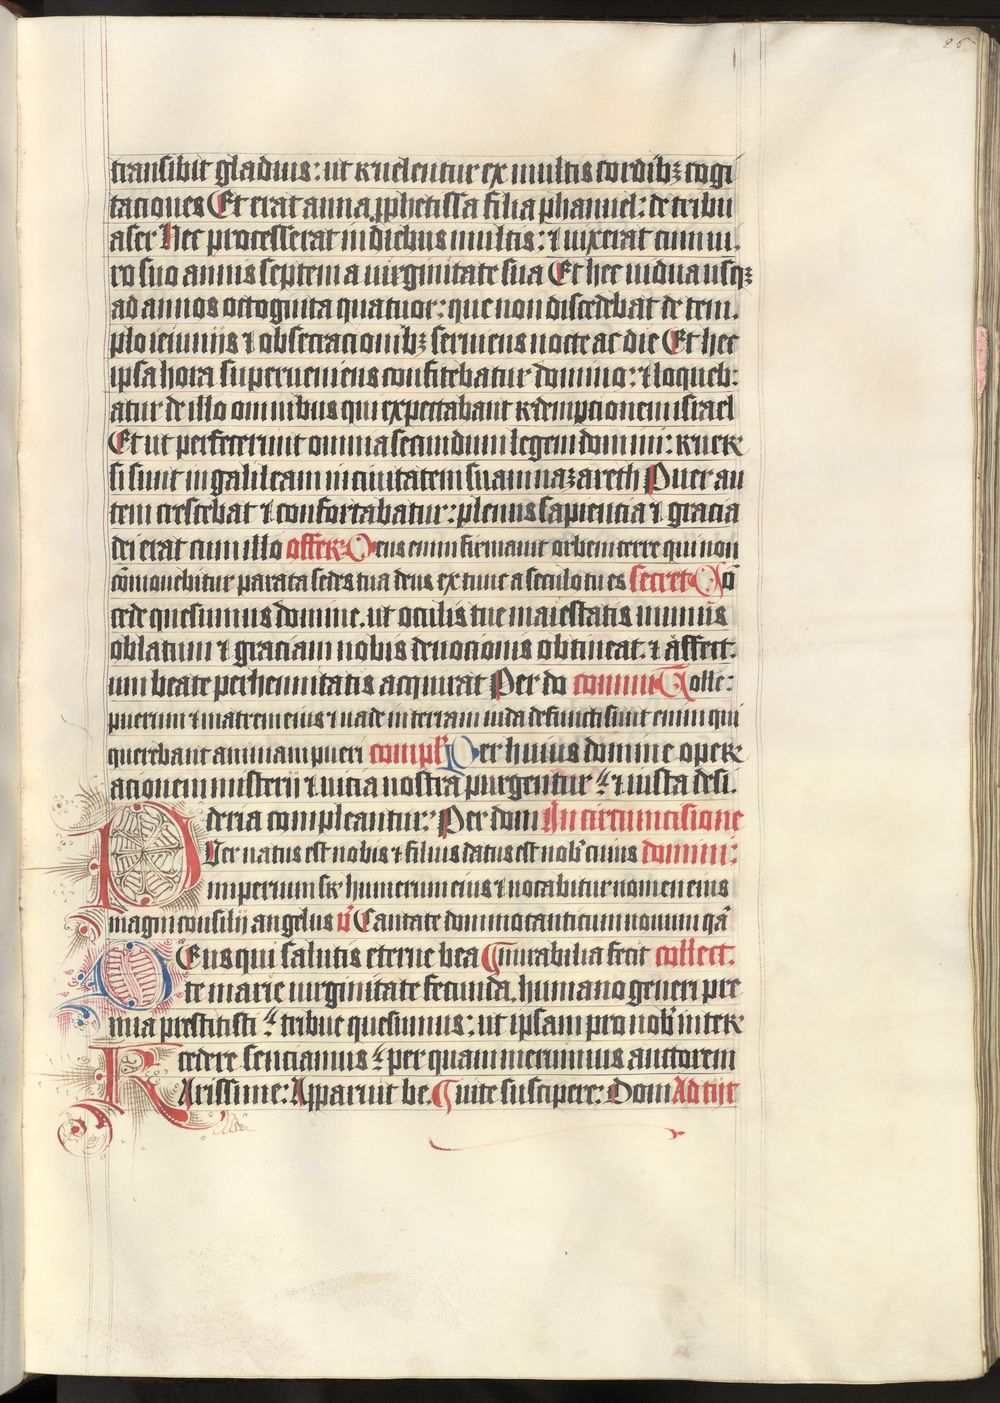 86
transibit gladius: ut reuelentur ex multis cordibꝫ cogi
taciones Et erat anna ꝓphetissa filia phanuel: de tribu
aser Hec processerat in diebus multis: ⁊ uixerat cum ui.
ro suo annis septem a uirginitate sua Et hec uidua usqꝫ
ad annos octoginta quatuor: que non discedebat de tem.
plo ieiunijs ⁊ obsecracionibꝫ seruiens nocte ac die Et hec
ipsa hora superueniens confitebatur domino: ⁊ loqueb:
atur de illo omnibus qui expectabant redempcionem israel
Et ut perfecerunt omnia secundum legem domini: reuer
si sunt in galileam in ciuitatem suam nazareth Puer au
tem crescebat ⁊ confortabatur: plenus sapiencia ⁊ gracia
dei erat cum illo offer: Deus enim firmauit orbem terre qui non
cōmouebitur parata sedes tua deus ex tunc a seculo tu es secret Cō
cede quesumus domine. ut oculis tue maiestatis munus
oblatum ⁊ graciam nobis deuocionis obtineat. ⁊ affect.
um beate perhennitatis acquirat Per do commu Tolle:
puerum ⁊ matrem eius ⁊ uade in terram iuda defuncti sunt enim qui
querebant animam pueri compl Per huius domine oper
acionem misterij ⁊ uicia nostra purgentur ⁊ iusta desi.
deria compleantur: Per dom In circumcisione
Puer natus est nobis ⁊ filius datus est nob cuius domini:
imperium sr humerum eius ⁊ uocabitur nomen eius
magni consilij angelus v̄ Cantate domino canticum nouum qā
Deus qui salutis eterne bea mirabilia fecit collect.
te marie uirginitate fecunda. humano generi pre
mia prestitisti tribue quesumus: ut ipsam pro nob inter
cedere senciamus per quam meruimus auctorem
Karissime: Apparuit be. uite suscipere: Dom Ad tijt